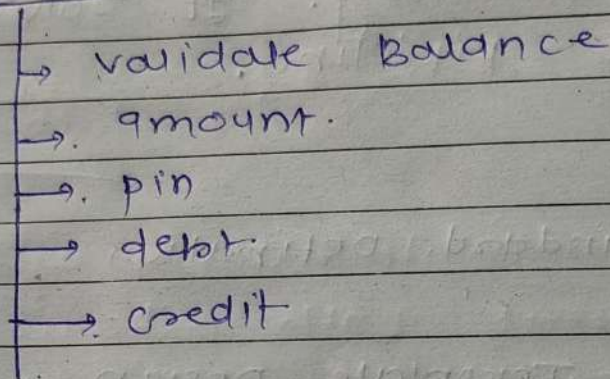 → validate Balance
→ amount.
→ pin
→ debt.
→ credit